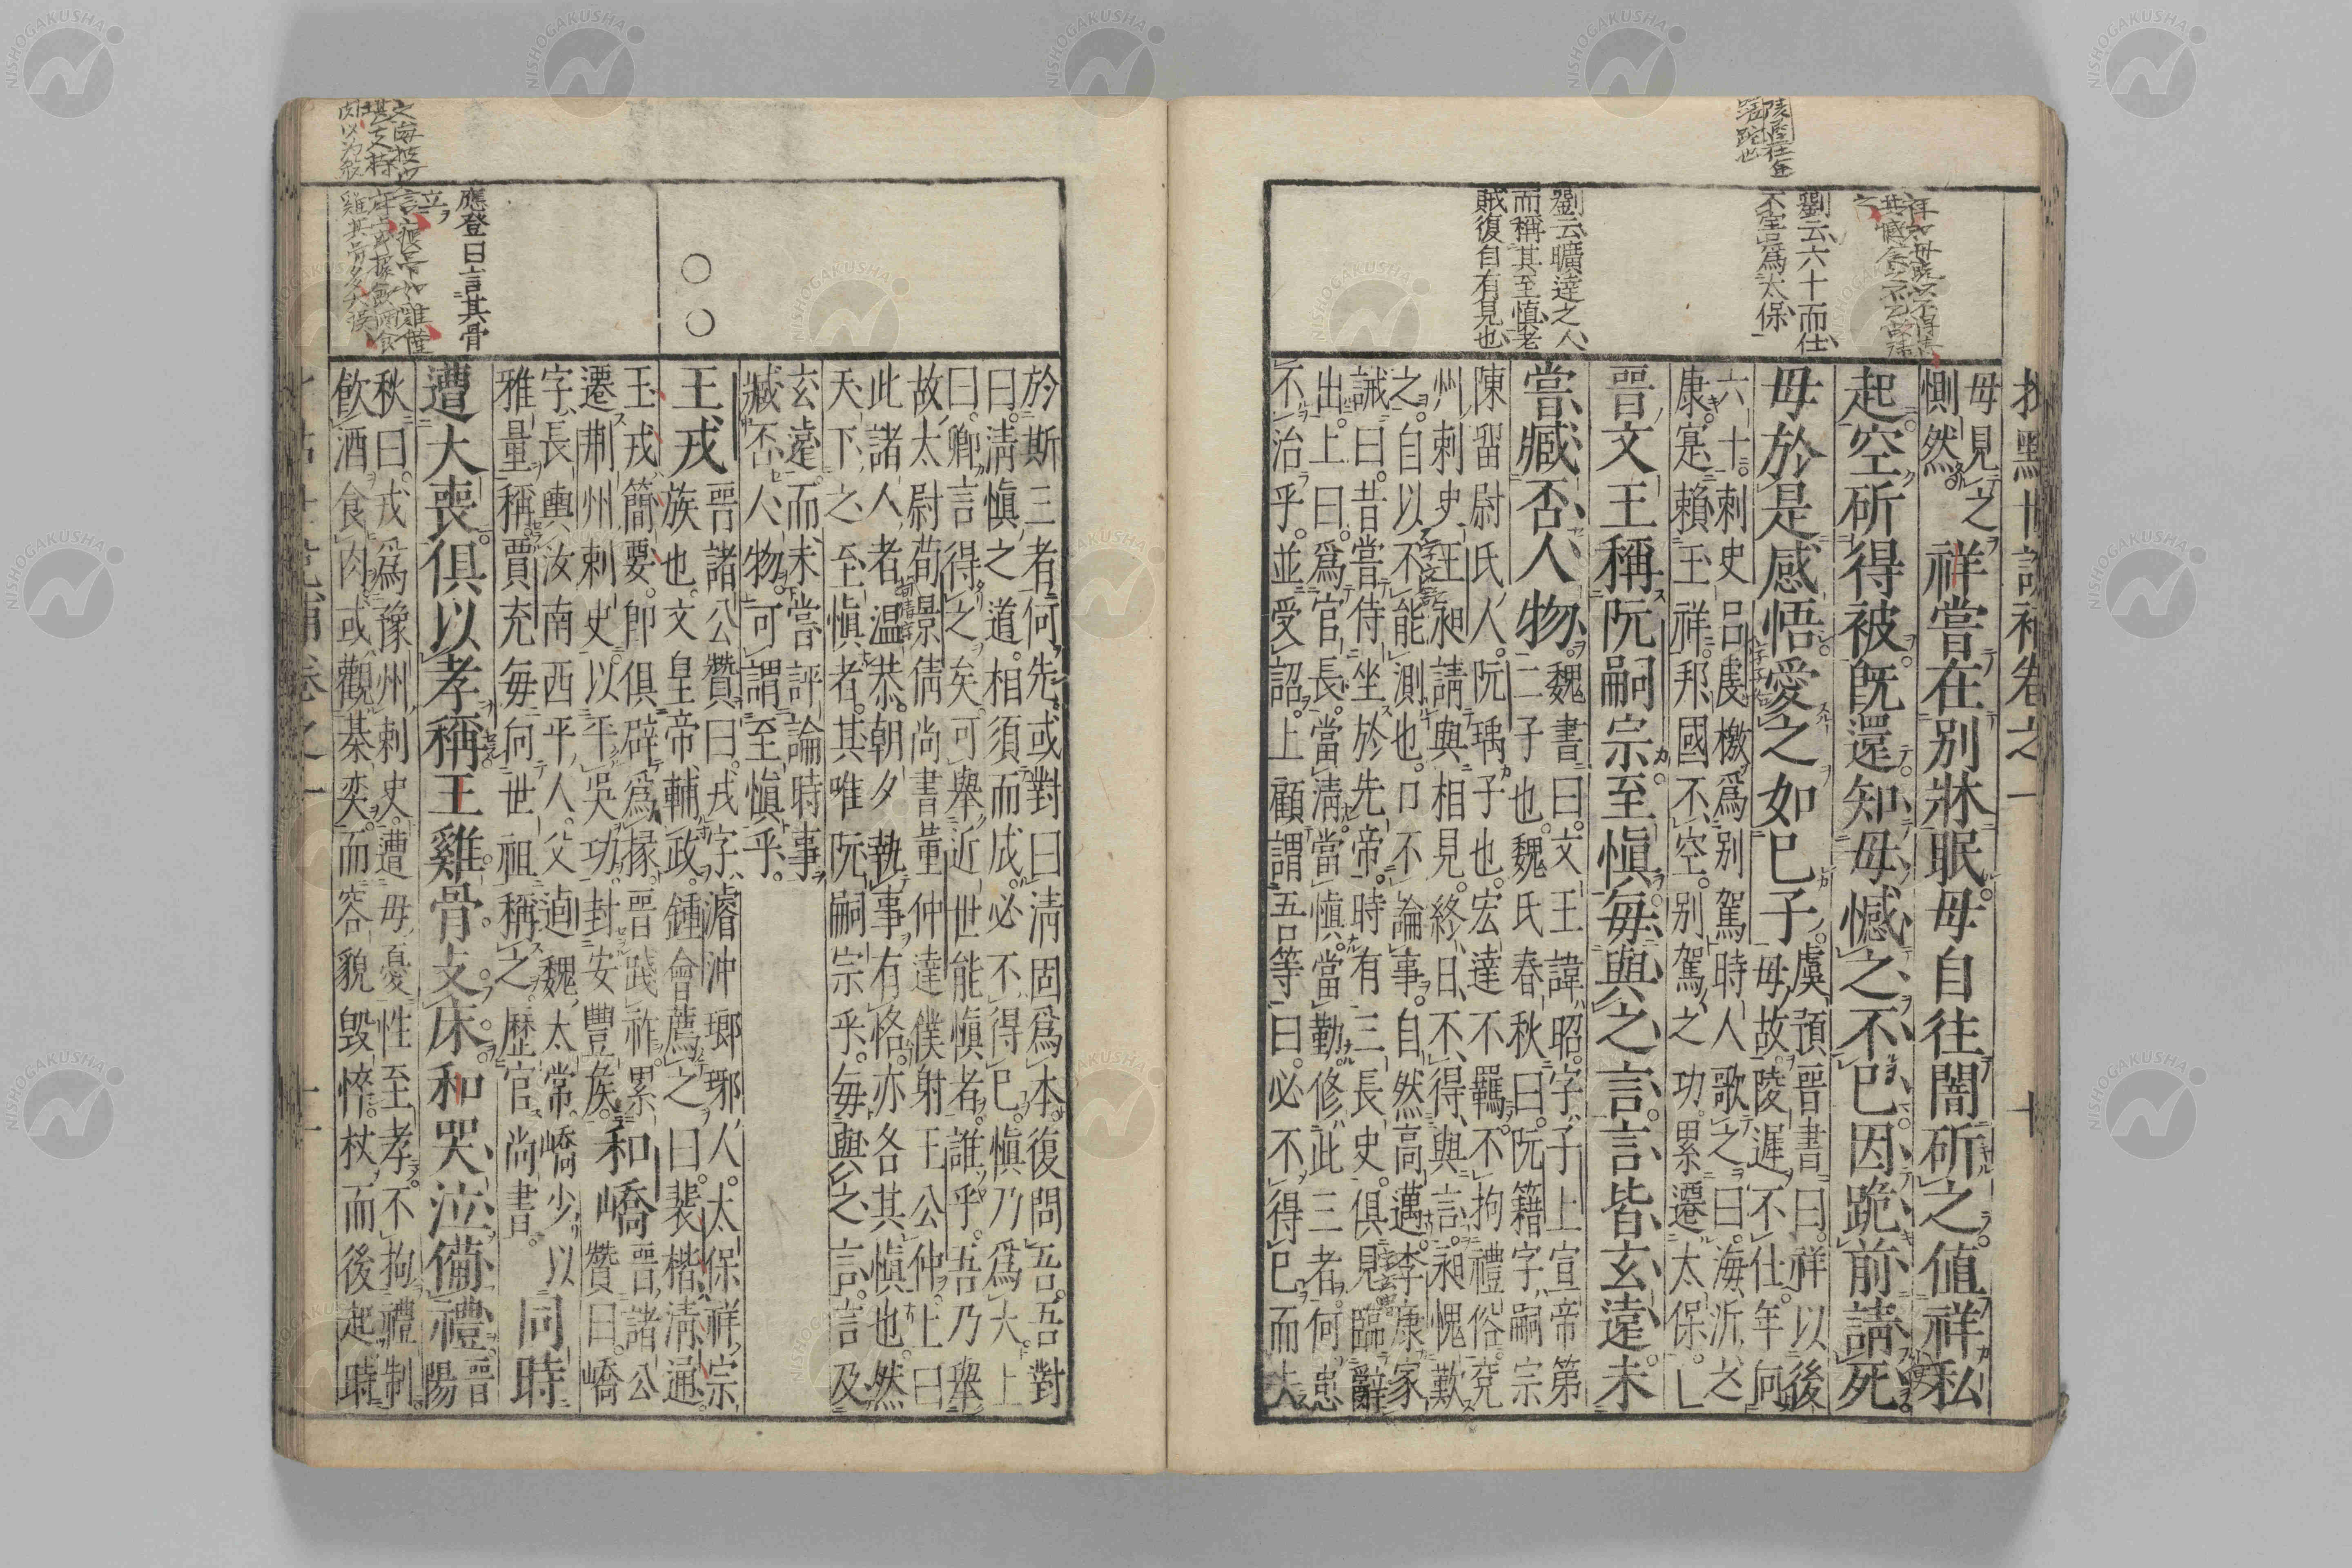 劉云六十而仕
不空爲太保一
劉云曠達之人
而稱其至慎老
賊復自有見也
母見之
惻然
祥嘗在別牀眠母自往闇斫之值祥私
起空斫得被既還知母憾之不已因跪前請死
母於是感悟愛之如已子
虞預晉書曰祥以後
母故陵遲不仕年向
六十刺史呂虔檄爲別駕時人歌之曰海沂之
康寔賴王祥邦國不空別駕之功累遷太保
晉文王稱阮嗣宗至慎每與之言言皆玄遠未
嘗臧否人物
魏書曰文王諱昭字子上宣帝第
二子也魏氏春秋曰阮籍字嗣宗
陳留尉氏人阮瑀子也宏達不羈不拘禮俗兗
州刺史王昶請與相見終日不得與言昶愧歎
之自以不能測也口不論事自然高邁李康家
誡曰昔嘗侍坐於先帝時有三長史俱見臨辭
出上曰爲官長當清當慎當勤修此三者何患
不治乎並受詔上顧謂吾等曰必不得已而去
於斯三者何先或對曰清固爲本復問吾吾對
曰清慎之道相須而成必不得已慎乃爲大上
曰卿言得之矣可舉近世能慎者誰乎吾乃舉
故太尉荀景倩尚書董仲達僕射王公仲上曰
此諸人者温恭朝夕執事有恪亦各其慎也然
天下之至慎者其唯阮嗣宗乎每與之言言及
玄遠而未嘗評論時事
臧否人物可謂至慎乎
○○
王戎
晉諸公贊曰戎字濬沖瑯琊人太保祥宗
族也文皇帝輔政鍾會薦之曰裴楷清通
王戎簡要即俱辟爲掾晉踐祚累
遷荊州刺史以平吳功封安豐族
和嶠
晉諸公
贊曰嶠
字長輿汝南西平人父逌魏太常嶠少以
雅量稱賈充每向世祖稱之歷官尚書
同時
遭大喪俱以孝稱王雞骨支床和哭泣備禮
晉
陽
秋曰戎爲豫州刺史遭母憂性至孝不拘禮制
飲酒食肉或觀棊奕而容貌毀悴杖而後起時
應登曰言其骨
立